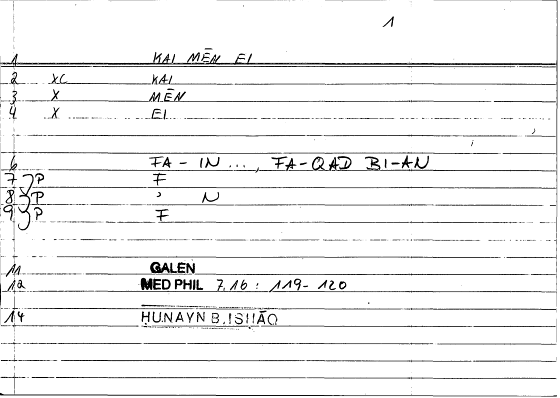 1
1 KAI MĒN EI
2 XC KAI
3 X MĒN
4 X EI
6 FA - IN ..., FA-QAD BI-AN
7 P F
8 P ʾ N
9 P F
11 GALEN
12 MED PHIL 7,16 : 119-120
14 ḤUNAYN B.ISḤĀQ